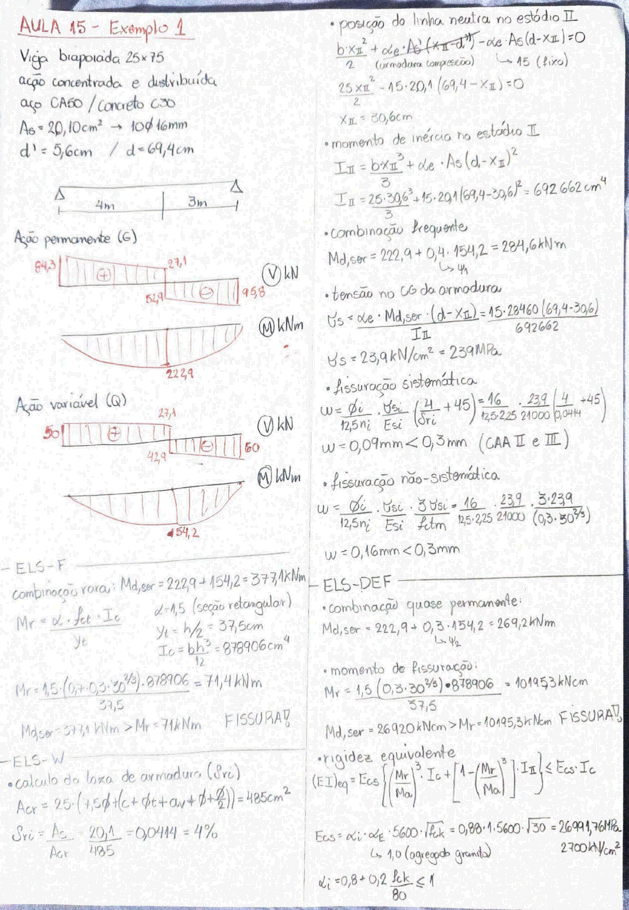 AULA 15 - Exemplo 1
Viga biapoiada 25x75
ação concentrada e distribuída
aço CA50 / Concreto C30
As = 20,10cm² → 10Ø16mm
d' = 5,6cm / d = 69,4cm
4m 3m
Ação permanente (G)
84,3 + 27,1 V kN
52,9 - 95,8
M kNm
222,9
Ação variável (Q)
27,1
50 + V kN
42,9 - 60
M kNm
154,2
- ELS-F
combinação rara: Md,ser = 222,9 + 154,2 = 377,1kNm
Mr = α · fct · Ic / yt
α = 1,5 (seção retangular)
yt = h/2 = 37,5cm
Ic = bh³/12 = 878906cm⁴
Mr = 1,5 · (0,7 · 0,3 · 30^2/3) · 878906 / 37,5 = 71,4kNm
Md,ser = 377,1 kNm > Mr = 71kNm FISSURA!
- ELS-W
• calculo da taxa de armadura (ρri)
Acr = 25 · (7,5Ø + (c + Øt + av + Ø + Ø/2)) = 485cm²
ρri = As/Acr = 20,1/485 = 0,0414 = 4%
• posição da linha neutra no estádio II
b·xII²/2 + αe · As'(xII - d') - αe · As(d - xII) = 0
(armadura compressão) ↳ 15 (fixo)
25xII²/2 - 15 · 20,1 (69,4 - xII) = 0
xII = 30,6cm
• momento de inércia no estádio II
III = bxII³/3 + αe · As(d - xII)²
III = 25 · 30,6³/3 + 15 · 20,1 (69,4 - 30,6)² = 692 662cm⁴
• combinação frequente
Md,ser = 222,9 + 0,4 · 154,2 = 284,6kNm
↳ ψ1
• tensão no CG da armadura
σs = αe · Md,ser · (d - xII) / III = 15 · 28460 (69,4 - 30,6) / 692662
σs = 23,9kN/cm² = 239MPa
• fissuração sistemática
w = Øi/12,5ηi · σsi/Esi (4/ρri + 45) = 16/12,5·2,25 · 23,9/21000 (4/0,0414 + 45)
w = 0,09mm < 0,3mm (CAA II e III)
• fissuração não-sistemática
w = Øi/12,5ηi · σsi/Esi · 3σsi/fctm = 16/12,5·2,25 · 23,9/21000 · 3·239/(0,3·30^2/3)
w = 0,16mm < 0,3mm
- ELS-DEF
• combinação quase permanente:
Md,ser = 222,9 + 0,3 · 154,2 = 269,2kNm
↳ ψ2
• momento de fissuração:
Mr = 1,5 (0,3 · 30^2/3) · 878906 / 37,5 = 10195,3kNcm
Md,ser = 26920kNcm > Mr = 10195,3kNcm FISSURA!
• rigidez equivalente
(EI)eq = Ecs{(Mr/Ma)³ · Ic + [1 - (Mr/Ma)³] · III} ≤ Ecs · Ic
Ecs = αi · αE · 5600 √fck = 0,88 · 1 · 5600 · √30 = 26991,76MPa
↳ 1,0 (agregado granito) 2700kN/cm²
αi = 0,8 + 0,2 fck/80 ≤ 1